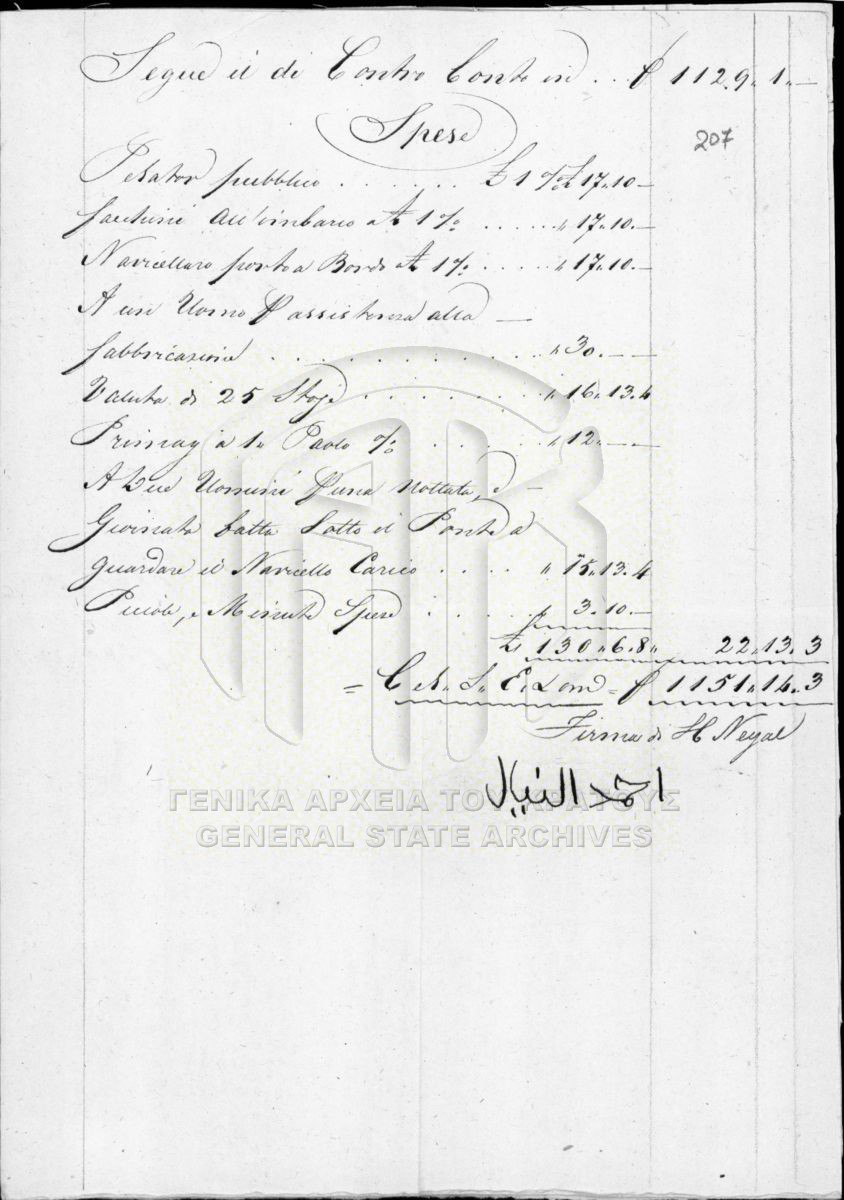 Segue il di Contro Conto in .. P 1129.1.—
Spese
207
Pesator pubblico ....... £ 1 % £ 17.10—
facchini all'imbarco a £ 1 % ...... " 17.10.—
Navicellaro porto a Bordo £ 1 % ..... " 17.10.—
A un Uomo P assistenza alla —
fabbricazione .............. " 30.——
Valuta di 25 Stoje .......... " 16.13.4
Primag a 1 Paolo % ....... " 12.——
A due Uomini P una Nottata, e —
Giornata fatta Sotto il Ponte a
guardare il Navicello Carico .... " 15.13.4
Piccole, e Minute Spese ....... " 3.10.—
£ 130.6.8. 22.13.3
= C er. S. E. = P 1151.14.3
Firma di H Neyal
احمد النيال
ΓΕΝΙΚΑ ΑΡΧΕΙΑ ΤΟΥ ΚΡΑΤΟΥΣ
GENERAL STATE ARCHIVES